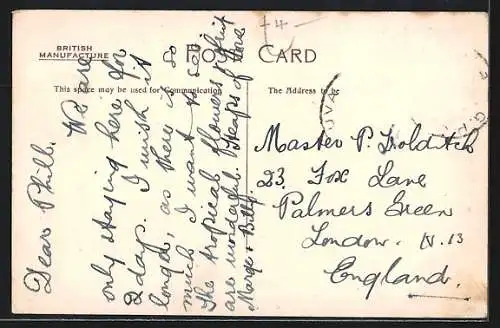 +4-
BRITISH
MANUFACTURE
POST CARD
This space may be used for Communication
The Address to be
Dear Phill. We are
only staying here for
2 days. I wish it
longer, as there is so
much I want to see
The tropical flowers & fruit
are wonderful. Heaps of love
Marge & Billy.
UVA
Master P. Holditch
23. Fox Lane
Palmers Green
London. N. 13
England.